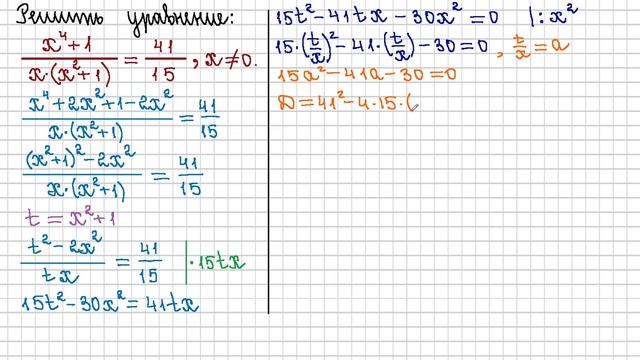 Решить уравнение:
(x⁴+1)/(x·(x²+1)) = 41/15, x≠0.
(x⁴+2x²+1-2x²)/(x·(x²+1)) = 41/15
((x²+1)²-2x²)/(x·(x²+1)) = 41/15
t = x²+1
(t²-2x²)/(tx) = 41/15 |·15tx
15t²-30x² = 41tx
15t²-41tx-30x²=0 |:x²
15·(t/x)²-41·(t/x)-30=0, t/x=a
15a²-41a-30=0
D=41²-4·15·(